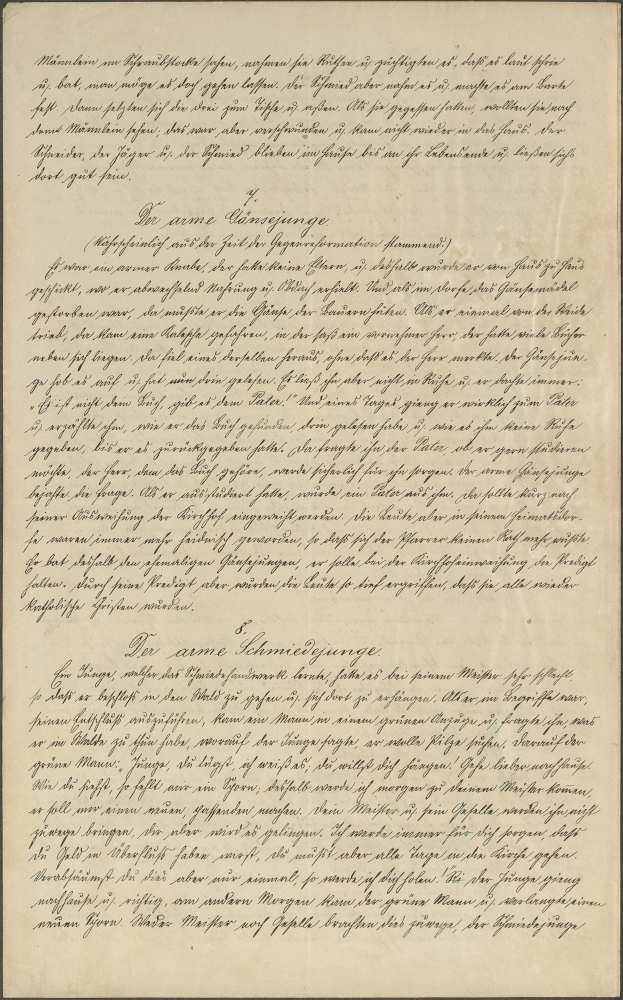 Männlein im Schraubstocke sahen, nahmen sie Ruthen u. züchtigten es, daß es laut schrie
u. bat, man möge es doch gehen lassen. Der Schmied aber nahm es u. machte es am Barte
fest. Dann setzten sich die drei zum Tische u. aßen. Als sie gegessen hatten, wollten sie nach
dem Männlein sehen; das war aber verschwunden u. kam nicht wieder in das Haus. Der
Schneider, der Jäger u. der Schmied blieben im Hause bis an ihr Lebensende u. ließen sichs
dort gut sein.
7.
Der arme Gänsejunge.
(Wahrscheinlich aus der Zeit der Gegenreformation stammend.)
Es war ein armer Knabe, der hatte keine Eltern, u. deshalb wurde er von Haus zu Haus
geschickt, wo er abwechselnd Nahrung u. Obdach erhielt. Und als im Dorfe das Gänsemädel
gestorben war, da mußte er die Gänse der Bauern hüten. Als er einmal von der Weide
trieb, da kam eine Kalesche gefahren, in der saß ein vornehmer Herr, der hatte viele Bücher
neben sich liegen. Da fiel eines derselben heraus, ohne daß es der Herr merkte. Der Gänsejun-
ge hob es auf u. hat nun drin gelesen. Es ließ ihn aber nicht in Ruhe u. er dachte immer:
"Es ist nicht dein Buch, gib es dem Pater!" Und eines Tages gieng er wirklich zum Pater
u. erzählte ihm, wie er das Buch gefunden, drin gelesen habe u. wie es ihm keine Ruhe
gegeben, bis er es zurückgegeben hatte. Da fragte ihn der Pater, ob er gern studieren
möchte, der Herr, dem das Buch gehöre, werde sicherlich für ihn sorgen. Der arme Gänsejunge
bejahte die Frage. Als er ausstudiert hatte, wurde ein Pater aus ihm. Da sollte kurz nach
seiner Ausweihung der Kirchhof eingeweiht werden. Die Leute aber in seinem Heimatsdor-
fe waren immer mehr heidnisch geworden, so daß sich der Pfarrer keinen Rath mehr wußte.
Er bat deshalb den ehemaligen Gänsejungen, er solle bei der Kirchhofeinweihung die Predigt
halten. Durch seine Predigt aber wurden die Leute so tief ergriffen, daß sie alle wieder
katholische Christen wurden.
8.
Der arme Schmiedejunge.
Ein Junge, welcher das Schmiedehandwerk lernte, hatte es bei seinem Meister sehr schlecht,
so daß er beschloß in den Wald zu gehen u. sich dort zu erhängen. Als er im Begriffe war,
seinen Entschluß auszuführen, kam ein Mann in einem grünen Anzuge u. fragte ihn, was
er im Walde zu thun habe, worauf der Junge sagte, er wolle Pilze suchen. Darauf der
grüne Mann: "Junge, du lügst, ich weiß es, du willst dich hängen! Gehe lieber nachhause.
Wie du siehst, so fehlt mir ein Sporn; deshalb werde ich morgen zu deinem Meister kommen,
er soll mir einen neuen, passenden machen. Dein Meister u. sein Geselle werden ihn nicht
zuwege bringen, dir aber wird es gelingen. Ich werde immer für dich sorgen, daß
du Geld in Überfluß haben wirst, du mußt aber alle Tage in die Kirche gehen.
Verabsäumst du dies aber nur einmal, so werde ich dich holen." Der Junge gieng
nachhause u. richtig, am andern Morgen kam der grüne Mann u. verlangte einen
neuen Sporn. Weder Meister noch Geselle brachten dies zuwege, der Schmiedejunge